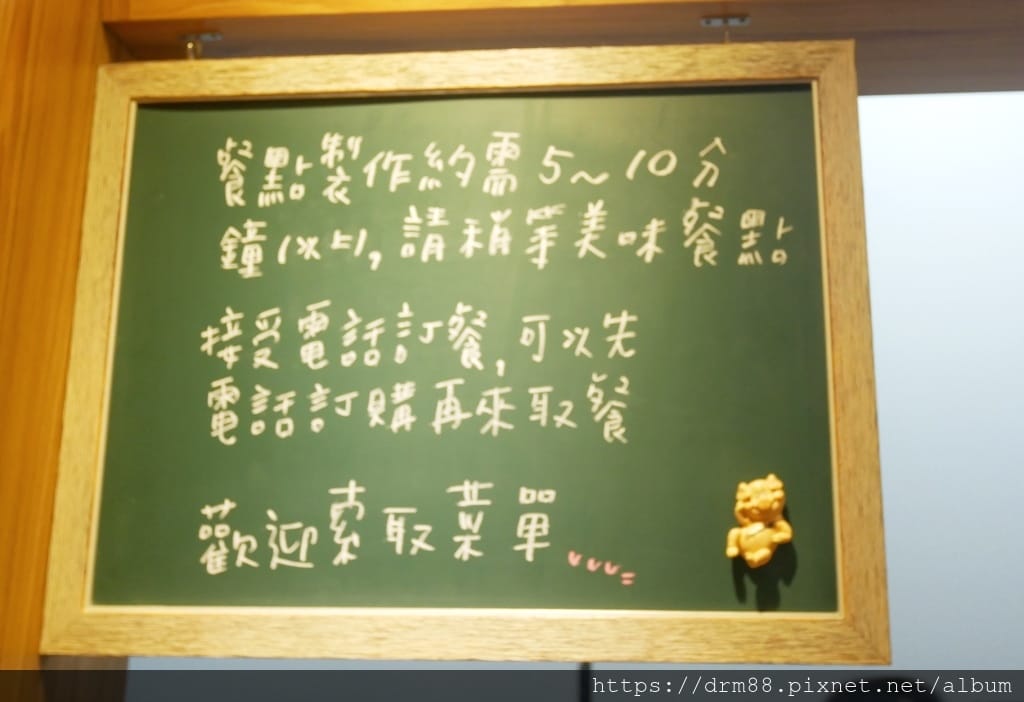 餐點製作約需5~10分
鐘(以上),請稍等美味餐點
接受電話訂餐,可以先
電話訂購再來取餐
歡迎索取菜單
https://drm88.pixnet.net/album